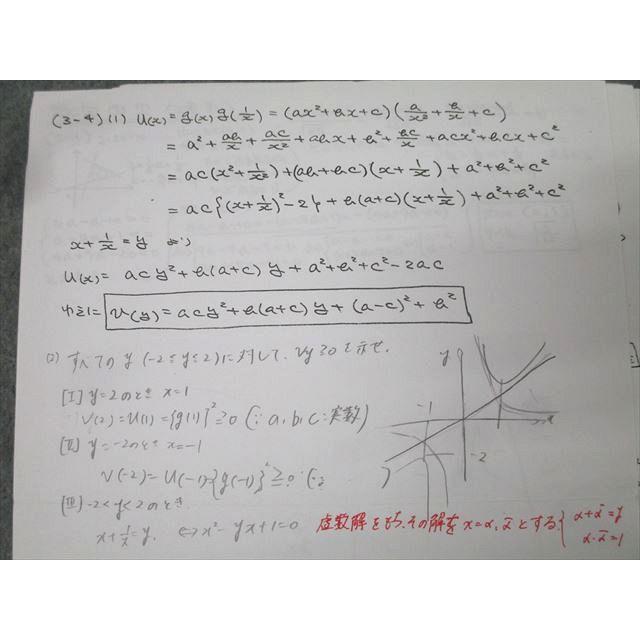 (3-4)(1) U(x) = g(x) g(1/x) = (ax²+bx+c)(a/x²+b/x+c)
= a² + ab/x + ac/x² + abx + b² + bc/x + acx² + bcx + c²
= ac(x²+1/x²) + (ab+bc)(x+1/x) + a²+b²+c²
= ac{(x+1/x)²-2} + b(a+c)(x+1/x) + a²+b²+c²
x+1/x = y より
U(x) = acy² + b(a+c)y + a²+b²+c²-2ac
ゆえに V(y) = acy² + b(a+c)y + (a-c)² + b²
(2) すべての y (-2≦y≦2)に対して、Vy≧0を示せ.
[I] y=2のとき x=1
V(2) = U(1) = {g(1)}² ≧0 (∵ a, b, c : 実数)
[II] y=-2のとき x=-1
V(-2) = U(-1) = {g(-1)}² ≧0 (∵
[III] -2<y<2のとき
x+1/x=y. ⇔ x²-yx+1=0 虚数解をもち、その解を x=α, ᾱ とする { α+ᾱ=y
α·ᾱ=1
y
-1
x
-2